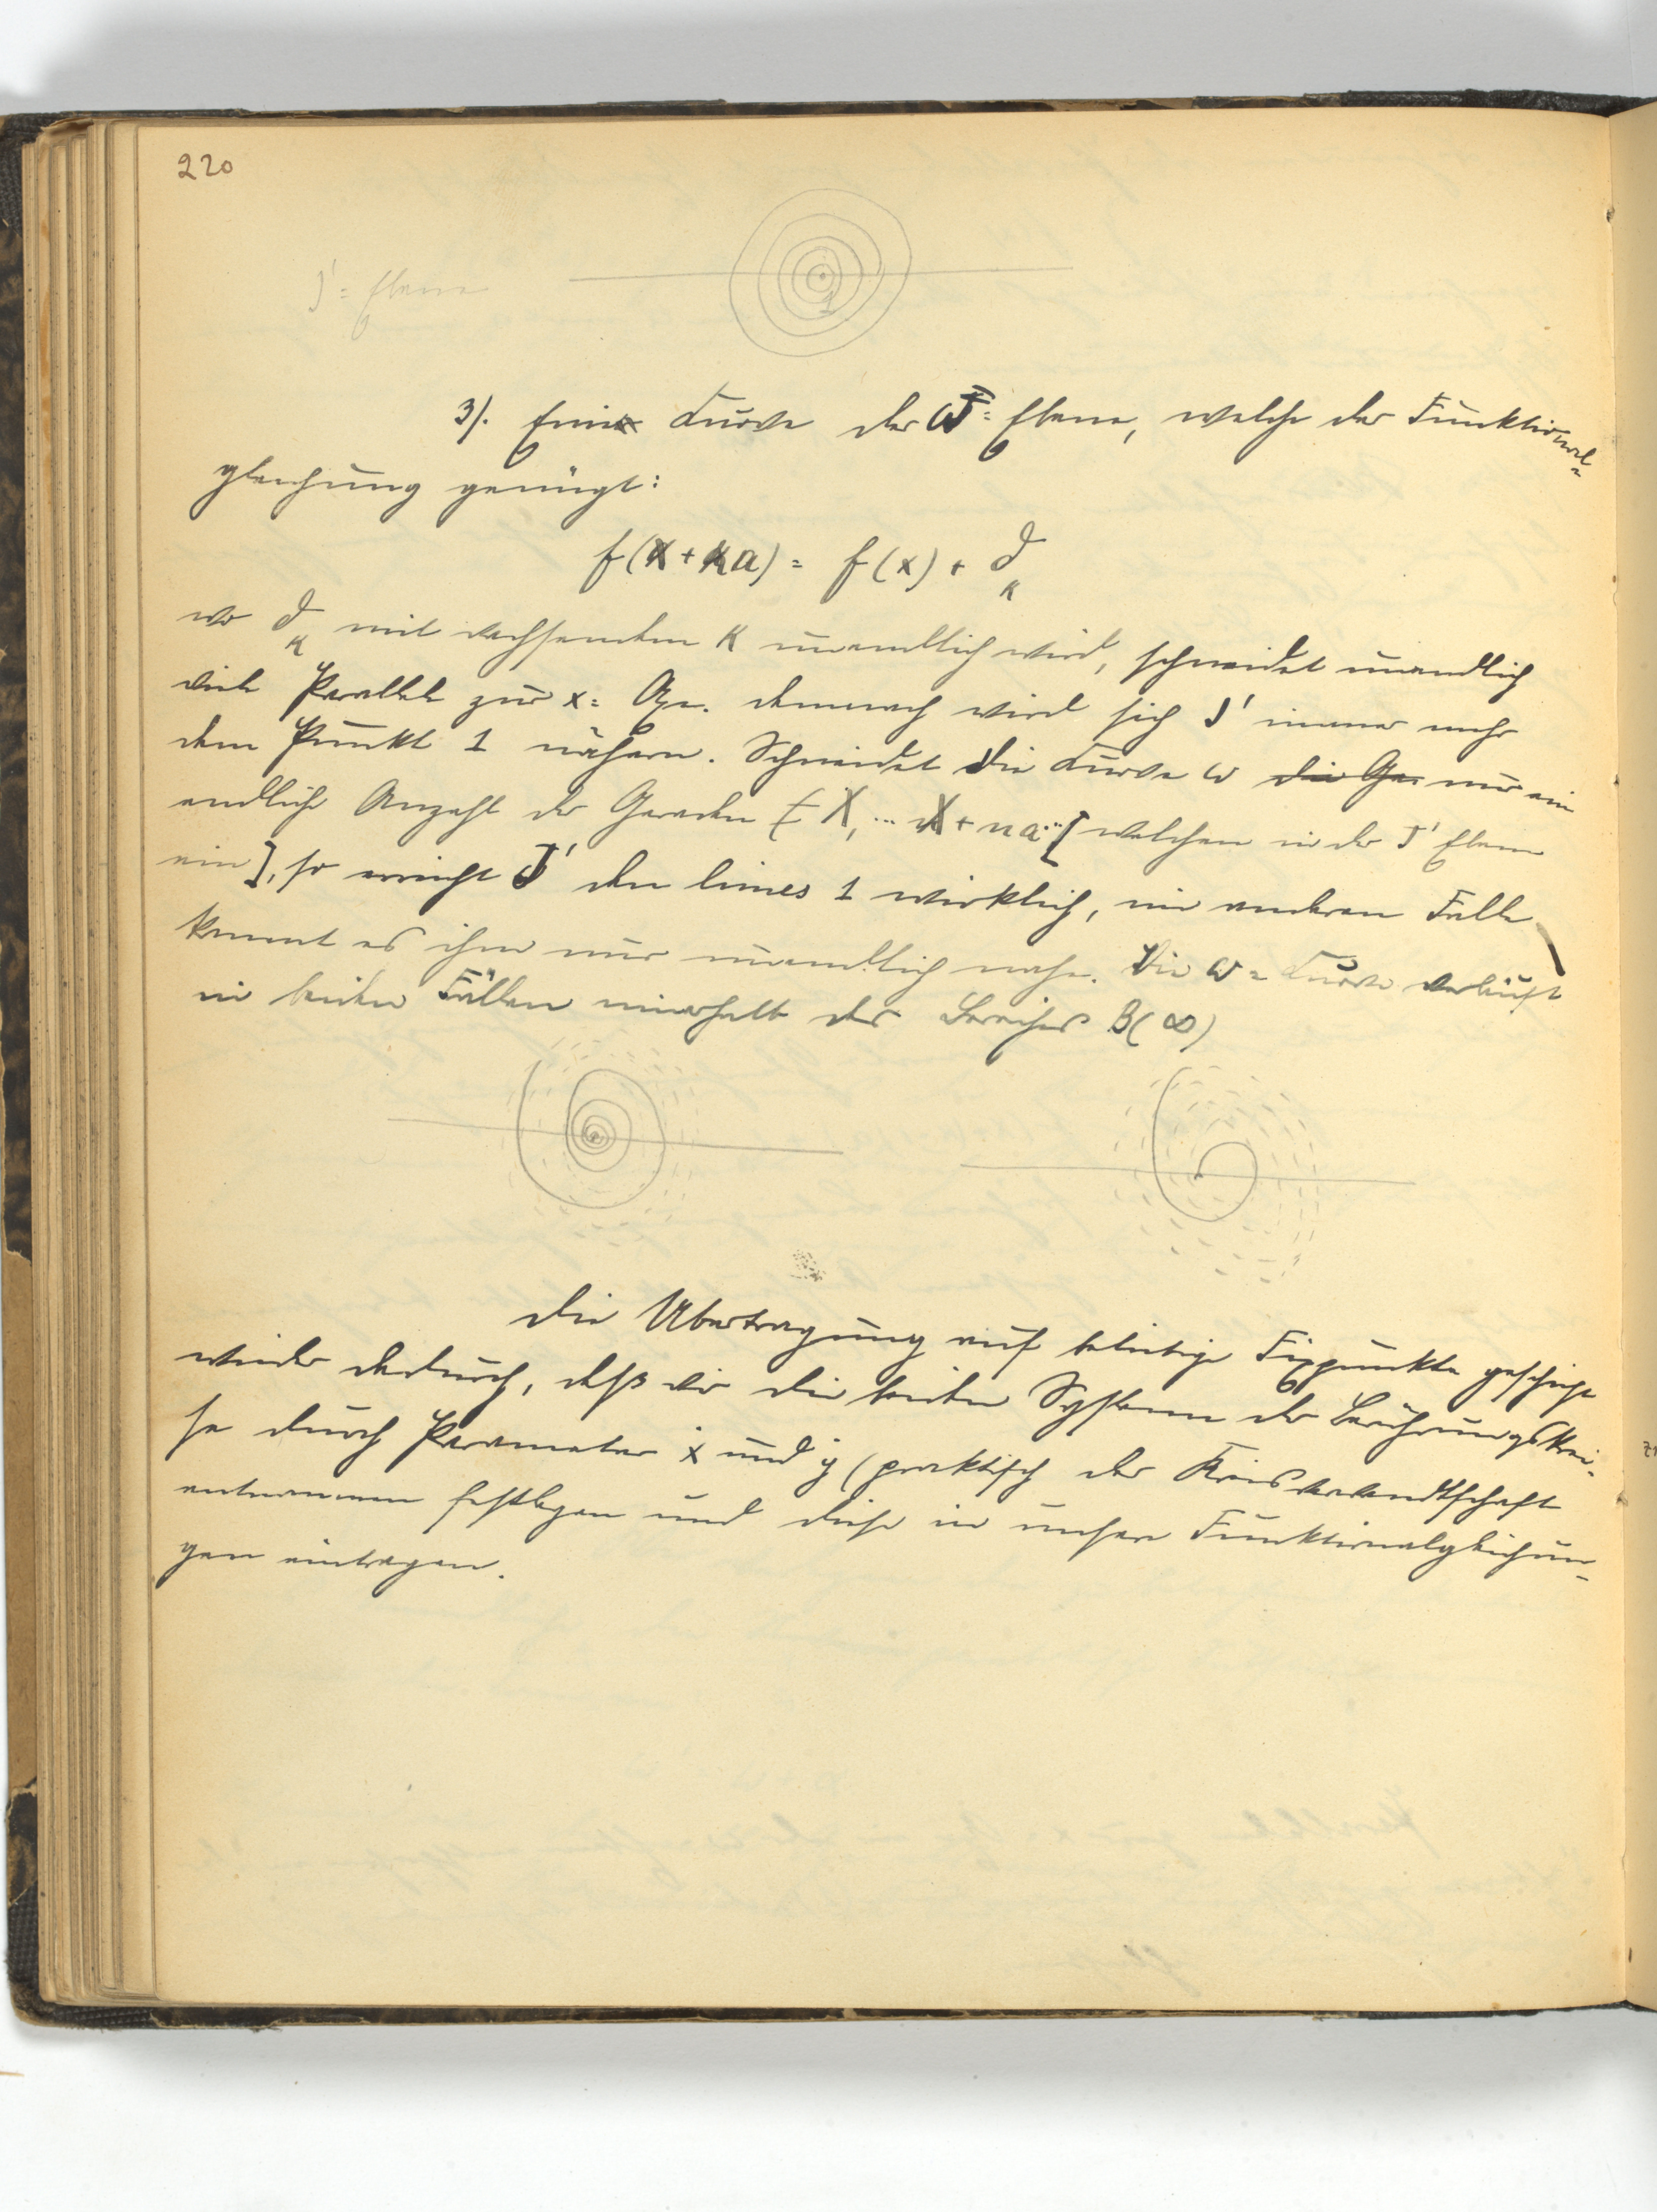 220
J' = Ebene
1
3). Eine Kurve der W = Ebene, welche der Funktional=
gleichung genügt:
f(x+κa) = f(x) + δ
κ
wo δκ mit wachsendem κ unendlich wird, schneidet unendlich
viele Parallele zur x = Axe. demnach wird sich J' immer mehr
dem Punkt 1 nähern. Schneidet die Kurve w die Ger nur ein
endliche Anzahl der Geraden X, ... X + na ... [welchen in der J' Ebene
ein], so erreicht J' den limes 1 wirklich, im anderen Falle
kommt es ihm nur unendlich nahe. Die w = Kurve verläuft
in beiden Fällen innerhalb des Bereiches B(∞)
Die Übertragung auf beliebige Fixpunkte geschieht
wieder dadurch, daß wir die beiden Systeme der Berührungskrei-
se durch Parameter x und y (praktisch der Kreisverwandtschaft
entnommen festlegen und diese in unsere Funktionalgleichun-
gen eintragen.